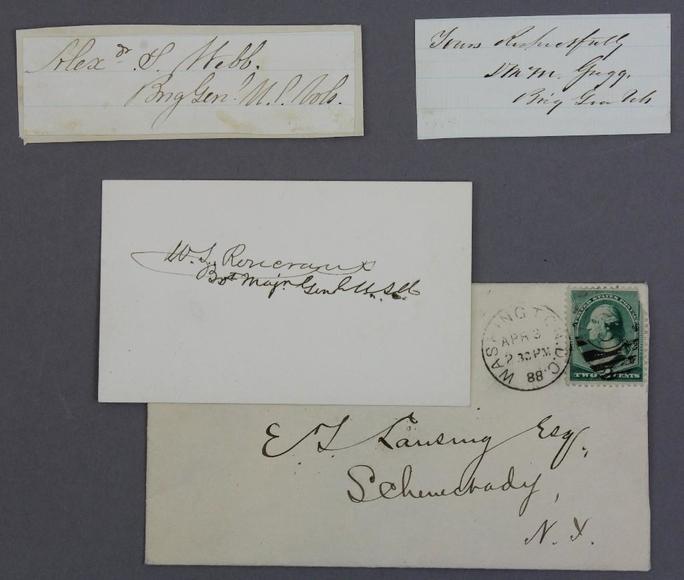 Alexdr S. Webb.
Brig Genl. U.S. Vols.
Yours Respectfully
D. McM. Gregg.
Brig Gen Vols
W. S. Rosecrans
Bvt Majr. Genl U.S.A.
WASHINGTON, D.C.
APR 3
2 30 PM
88
UNITED STATES POSTAGE
TWO CENTS
E T Lansing Esq.
Schenectady,
N. Y.